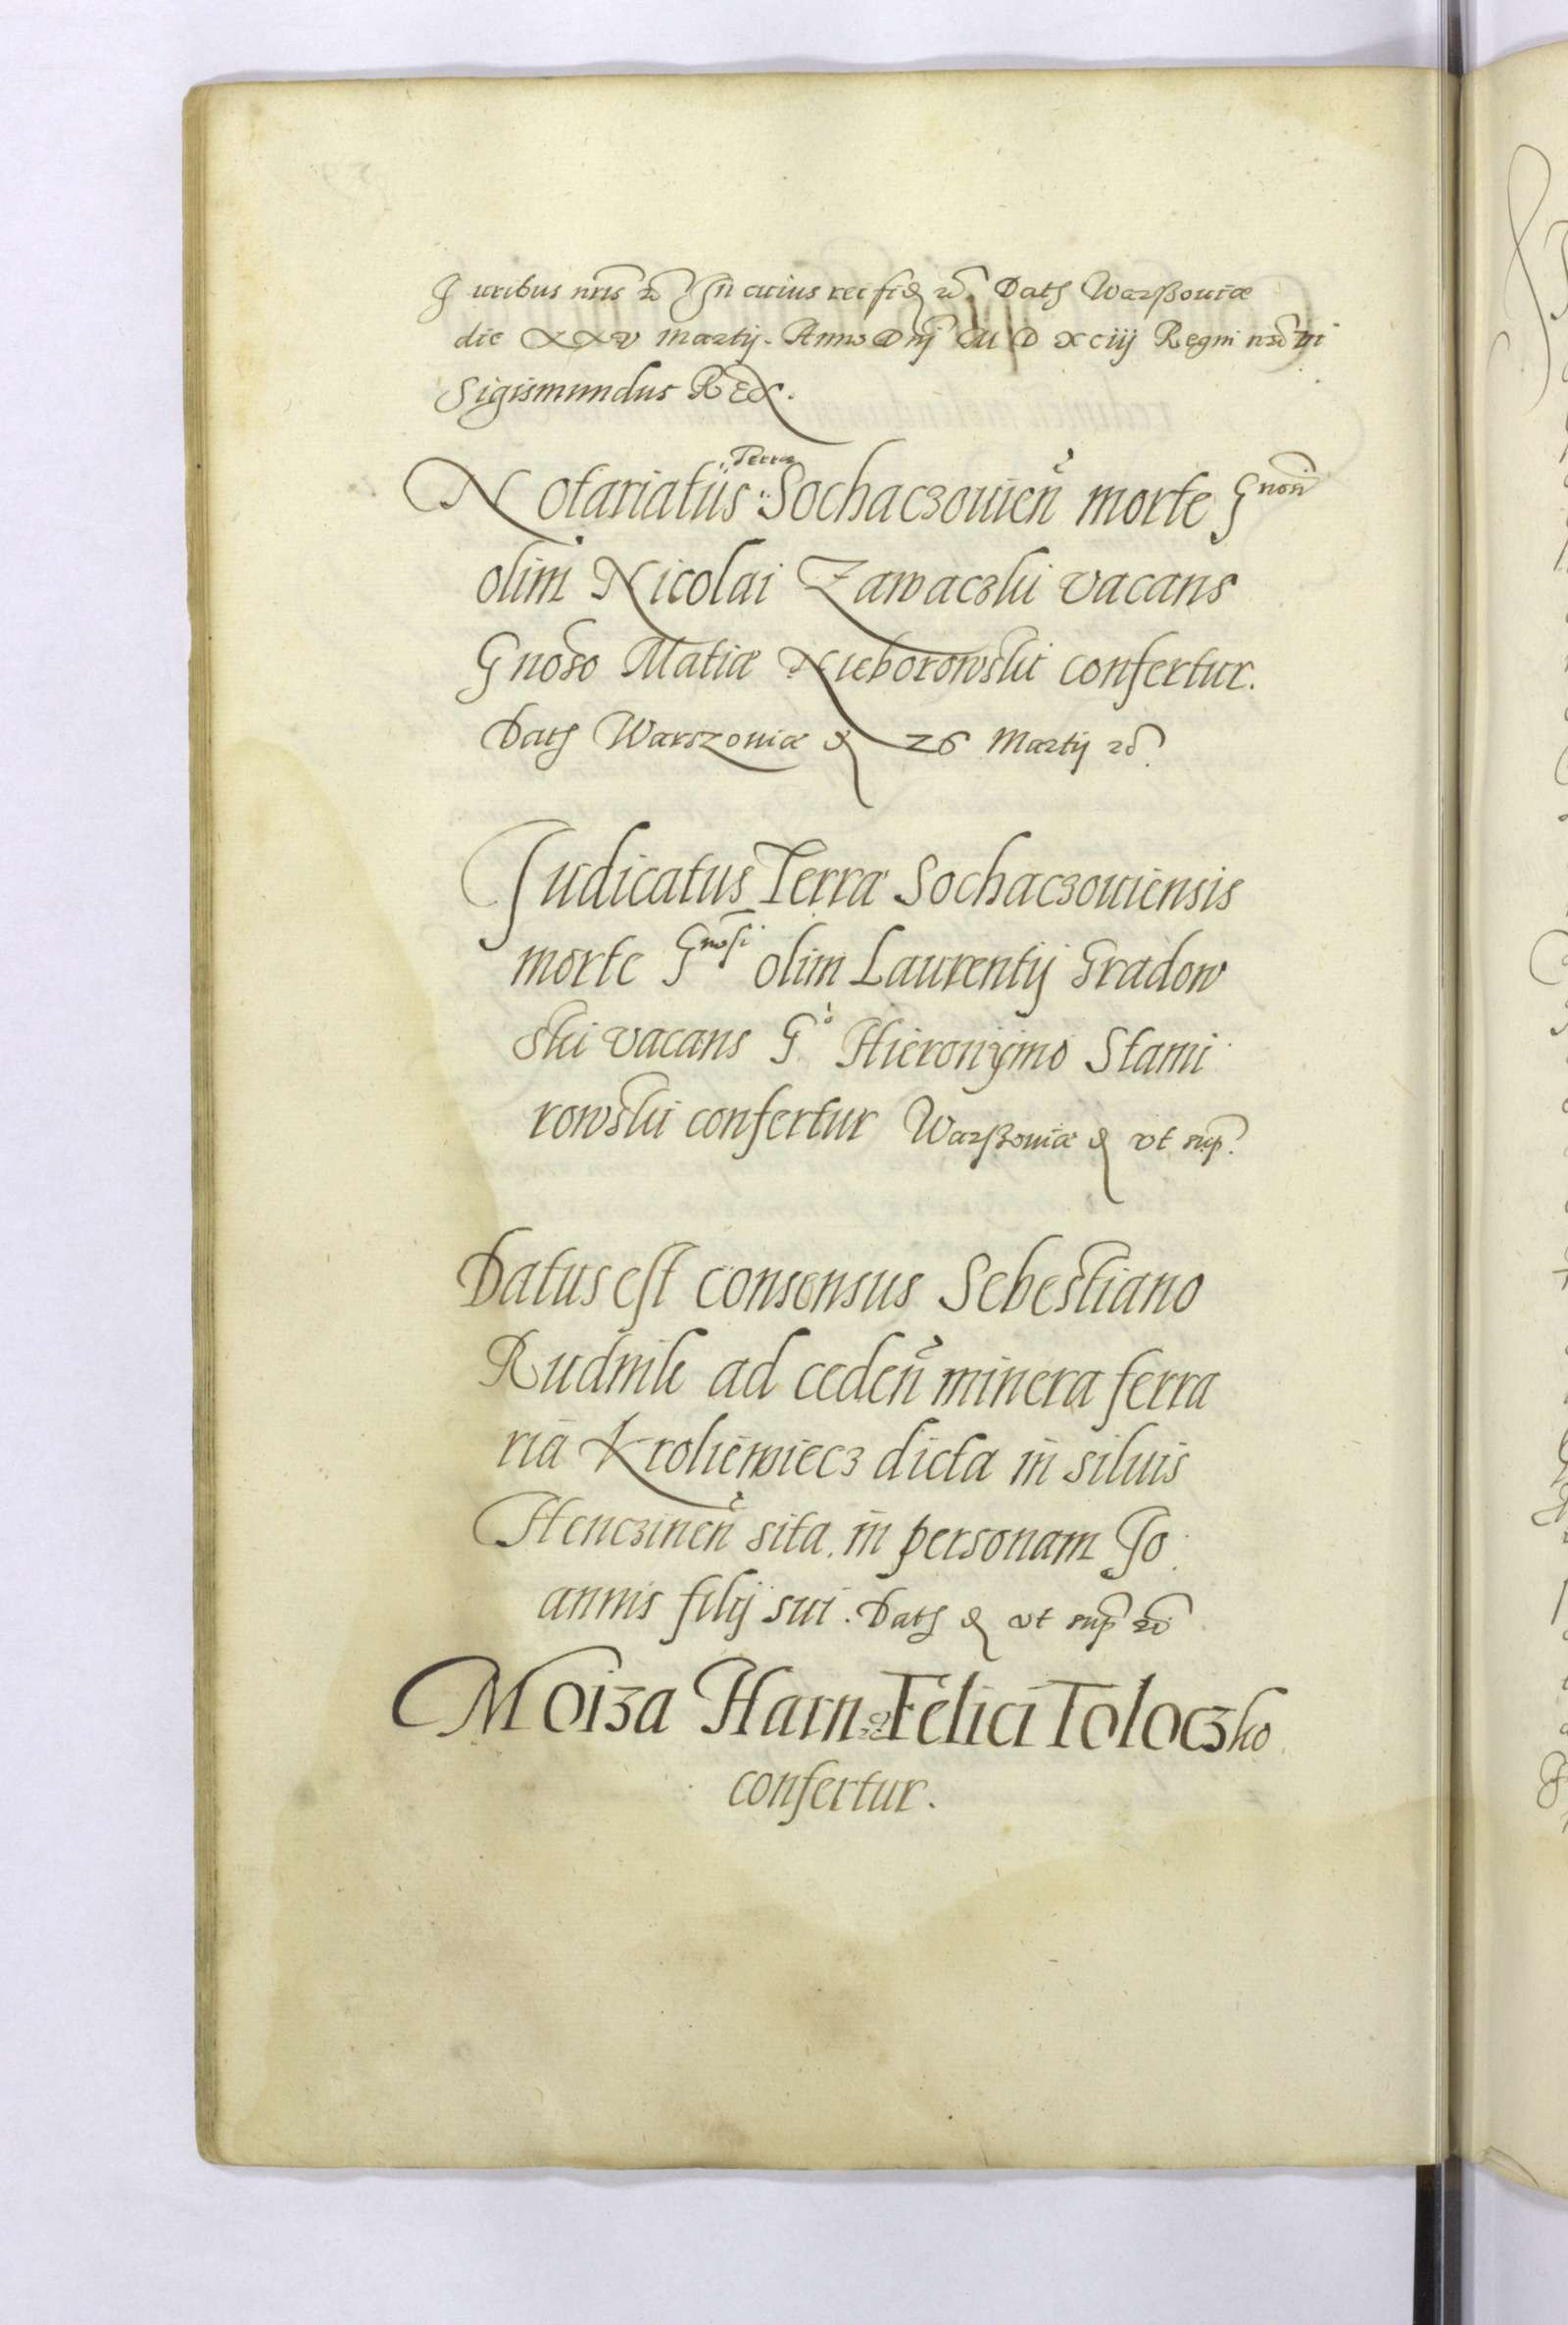 Iuribus nris &c In cuius rei fid &c Datt Warssouiæ
die XXV Martij. Anno Dnj M D xciij Regni nri vi
Sigismundus REX.
Notariatus Terræ Sochaczouien morte Gnosi
olim Nicolai Zawaczki vacans
Gnoso Matiæ Nieborowski confertur.
Datt Warszouiæ d 26 Martij &c
Judicatus Terræ Sochaczouiensis
morte Gnosi olim Laurentij Gradow
ski vacans Go Hieronijmo Stami
rowski confertur Warszouiæ d vt sup.
Datus est consensus Sebestiano
Rudnik ad ceden minera ferra
ria Kroliewiecz dicta in siluis
Henczinen sita in personam Jo
annis filij sui. Datt d vt sup &c
Moiza Harn Felici Toloczko
confertur.